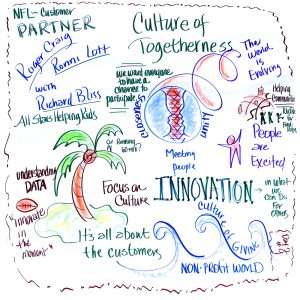 NFL - Customer
PARTNER
Roger Craig
Ronni Lott
with
Richard Bliss
All Stars Helping Kids
Culture of
Togetherness
we want everyone
to have a
chance to
participate
The
World
is
Evolving
Helping
Communities
People
are
Excited
Meeting
people
understanding
DATA
"innovate
in
the
moment"
Focus on
Culture
INNOVATION
in what
we
Can Do
For
Others
It's all about
the customers
Culture of
GIVING
NON-PROFIT WORLD